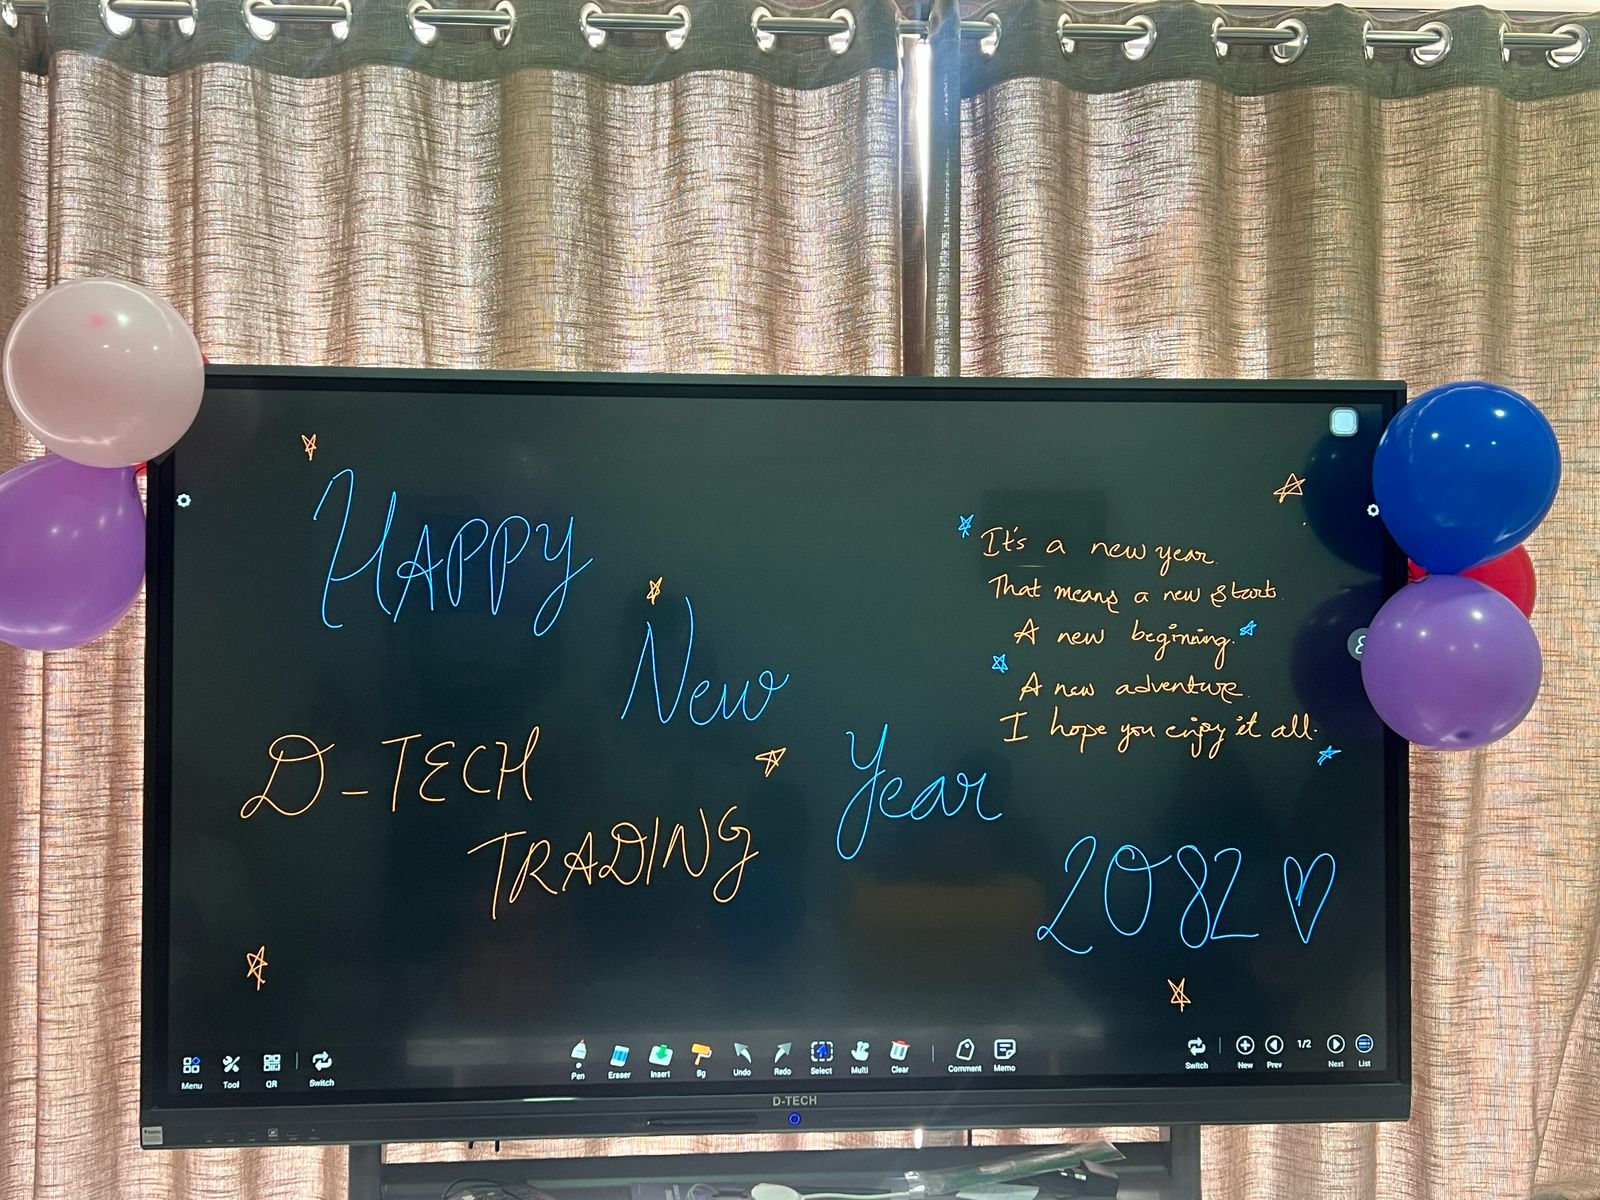 HAPPY
New
Year
2082
D-TECH
TRADING
It's a new year.
That means a new start.
A new beginning.
A new adventure.
I hope you enjoy it all.
Menu
Tool
QR
Switch
Pen
Eraser
Insert
Bg
Undo
Redo
Select
Multi
Clear
Comment
Memo
Switch
New
Prev
1/2
Next
List
D-TECH